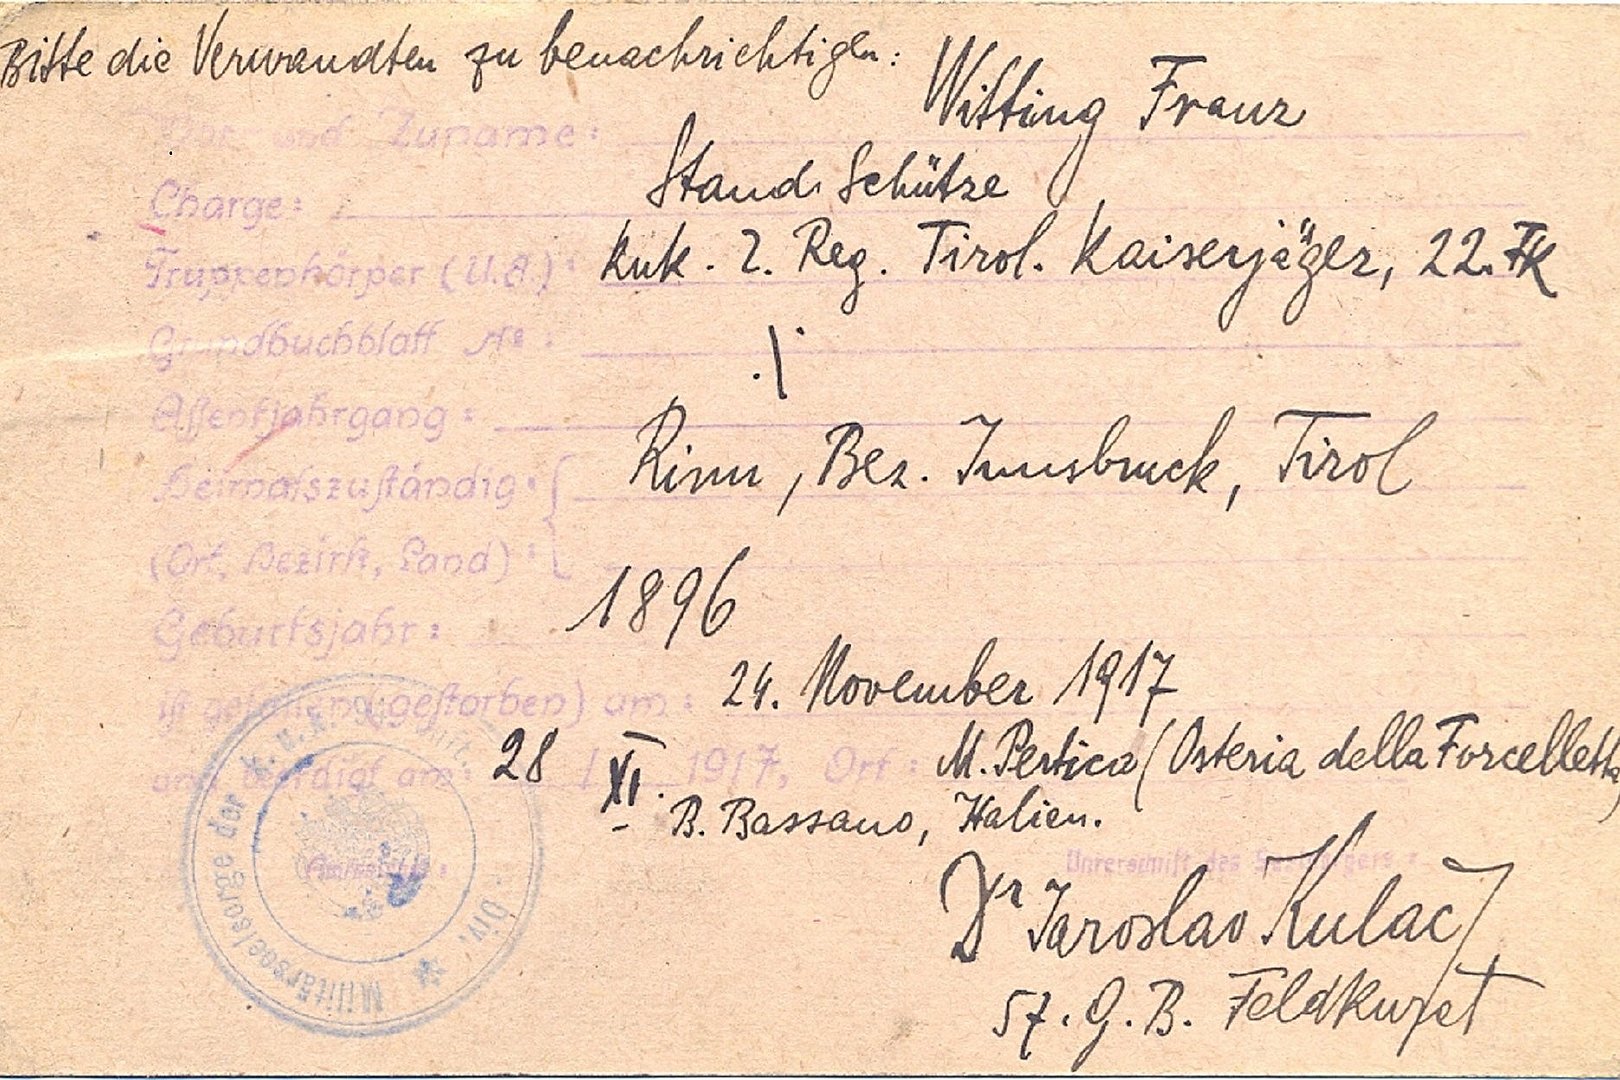 Bitte die Verwandten zu benachrichtigen:
Vor und Zuname: Witting Franz
Charge: Stand. Schütze
Truppenkörper (U.A.): kuk. 2. Reg. Tirol. Kaiserjäger, 22. FK
Grundbuchblatt №: ./.
Assentjahrgang:
Heimatszuständig: Rinn, Bez. Innsbruck, Tirol
(Ort, Bezirk, Land):
Geburtsjahr: 1896
ist gefallen (gestorben) am: 24. November 1917
und beerdigt am: 28 / XI. 1917, Ort: M. Pertica (Osteria della Forcelletta)
B. Bassano, Italien.
Unterschrift des Seelsorgers:
Dr Jaroslav Kulač
57. G. B. Feldkurat
Militärseelsorge der Div.